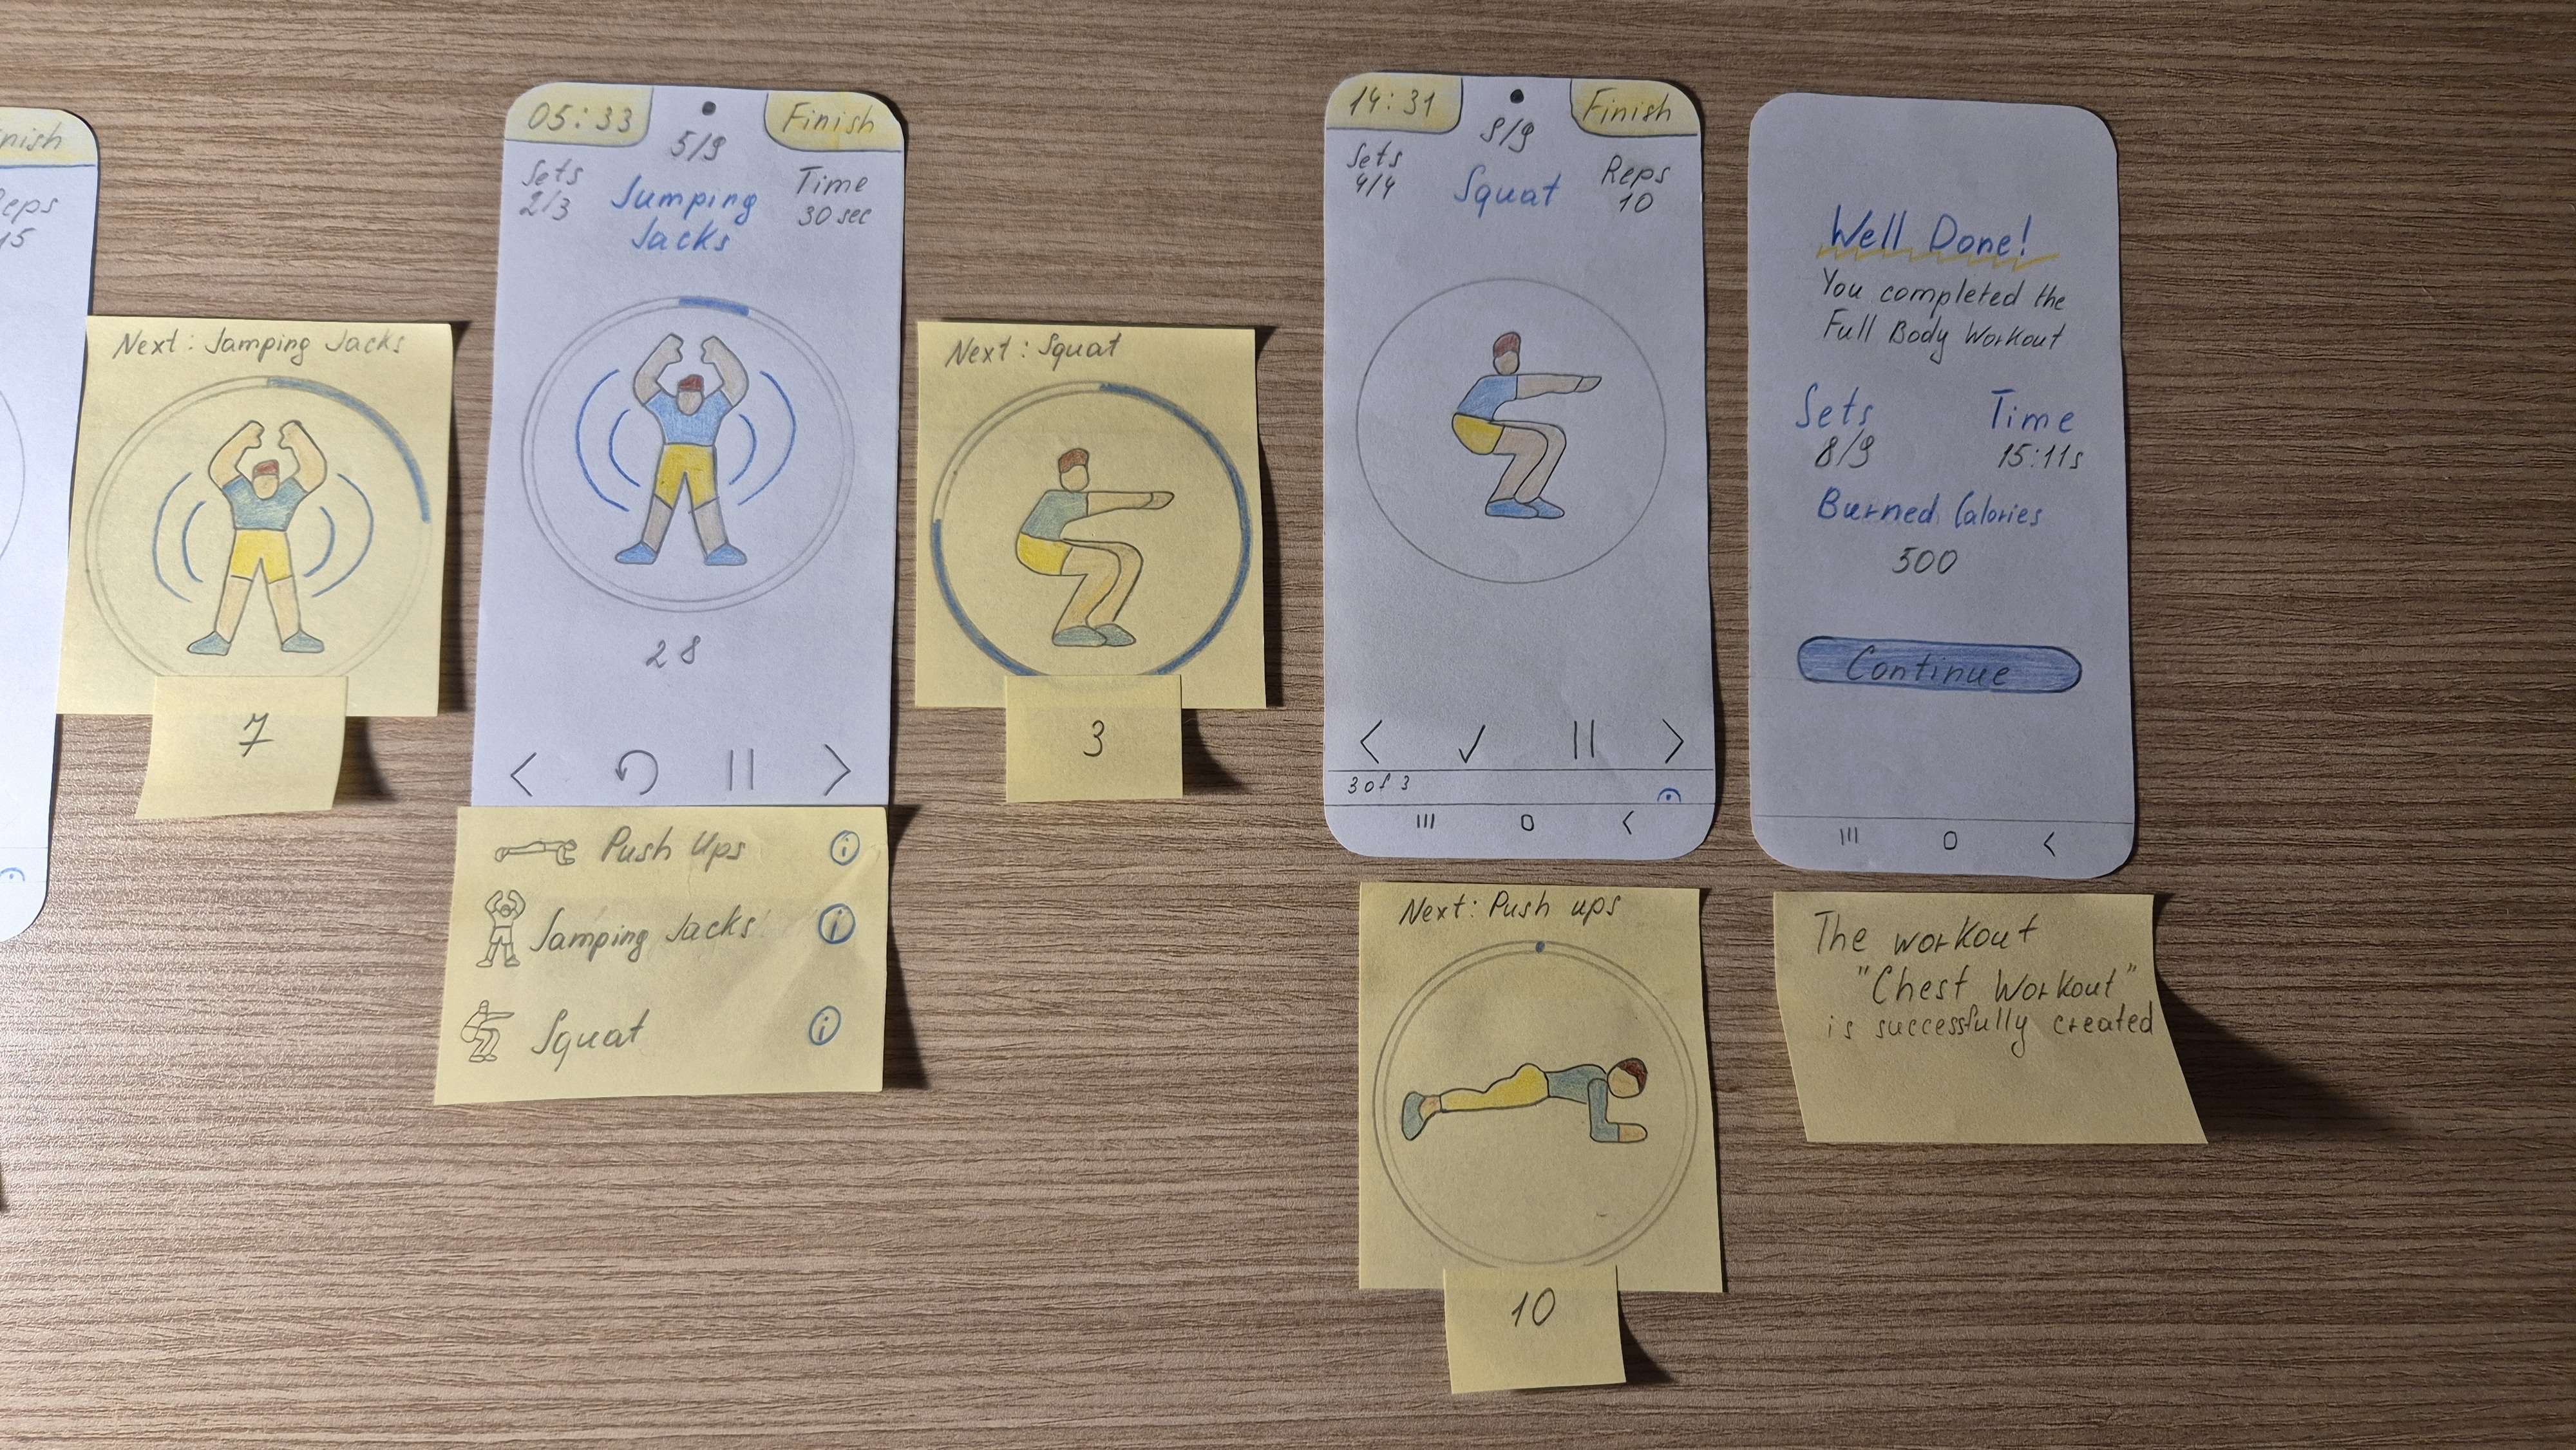 nish
Reps
15
Next: Jamping Jacks
7
05:33
Finish
5/9
Sets
2/3
Jumping
Jacks
Time
30 sec
28
Push Ups
Jamping Jacks
Squat
Next: Squat
3
14:31
Finish
9/9
Sets
4/4
Squat
Reps
10
3 of 3
Next: Push ups
10
Well Done!
You completed the
Full Body Workout
Sets
8/9
Time
15:11s
Burned Calories
500
Continue
The workout
"Chest Workout"
is successfully created